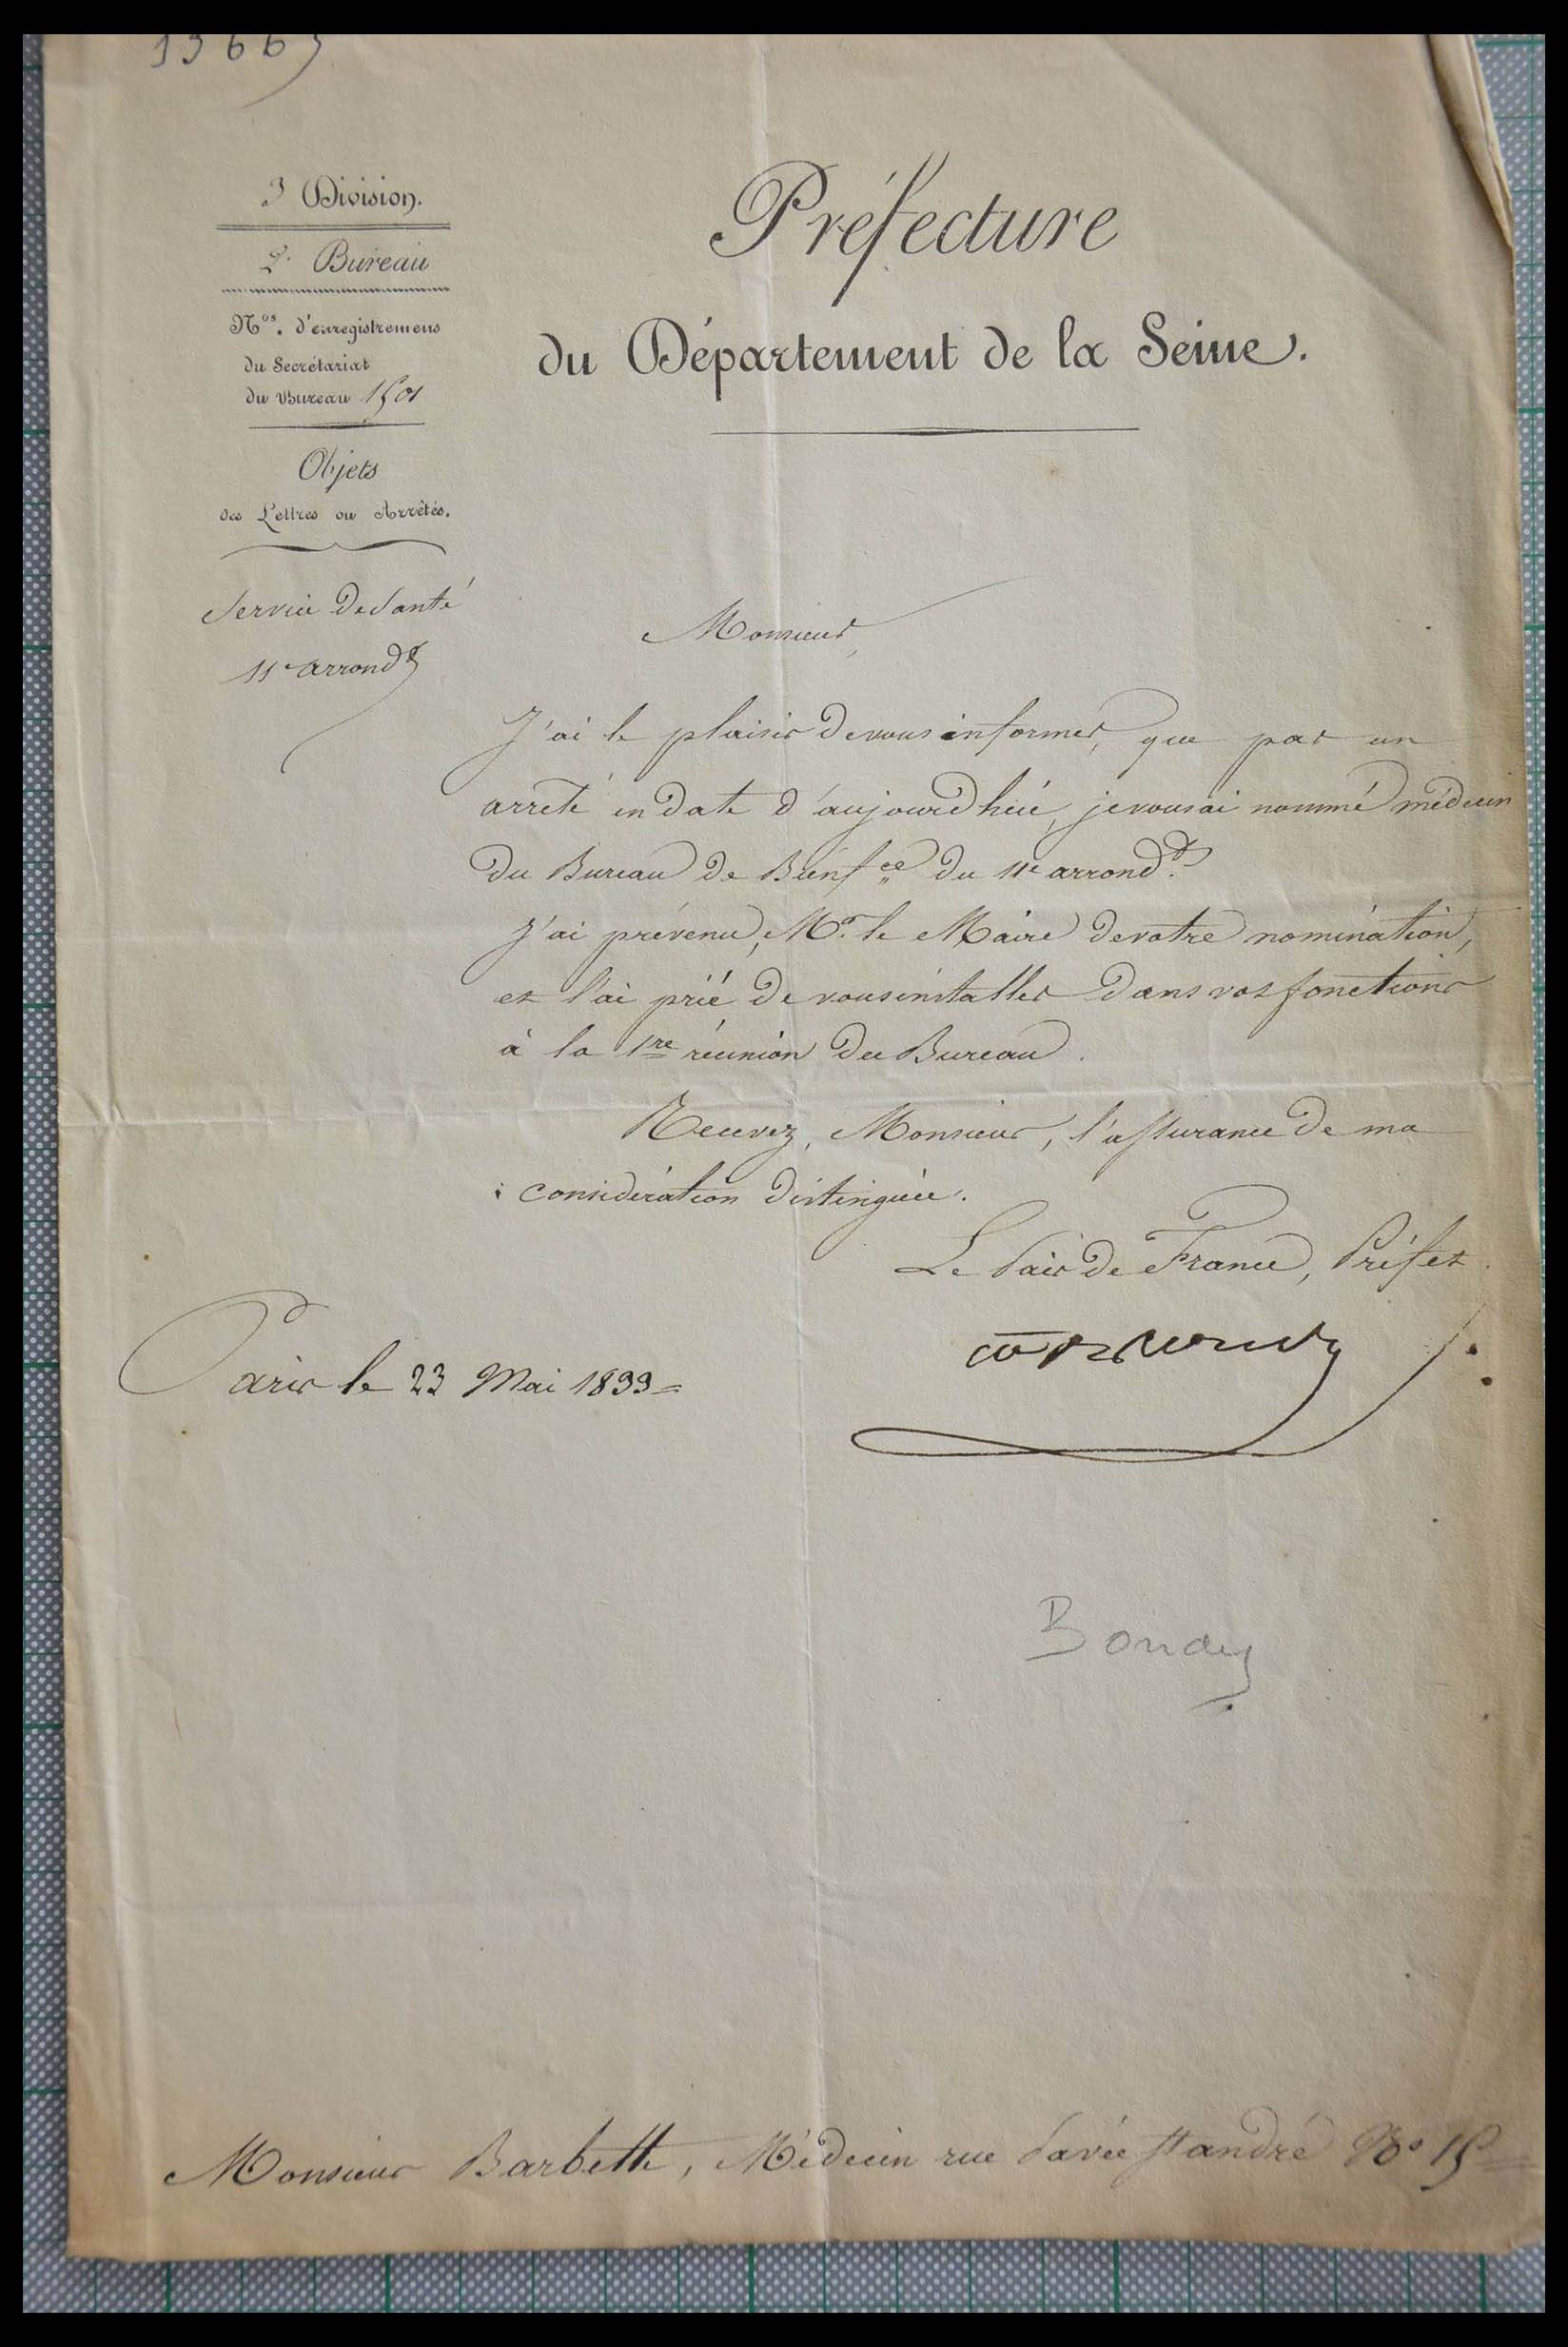 3 Division.
2.e Bureau
Nos. d'enregistremens
du Secrétariat
du Bureau 1501
Objets
des Lettres ou Arrêtés.
Service de Santé
11e arrondt
Préfecture
du Département de la Seine.
Monsieur,
J'ai le plaisir de vous informer, que par un
arrêté en date d'aujourd'hui, je vous ai nommé médecin
du Bureau de Bienfce du 11e arrondt.
J'ai prévenu, Mr. le Maire de votre nomination,
et l'ai prié de vous installer dans vos fonctions
à la 1re réunion du Bureau.
Recevez, Monsieur, l'assurance de ma
considération distinguée.
Le Pair de France, Préfet.
Paris le 23 Mai 1833=
Bondy
Monsieur Barbette, Médecin rue Pavée St andré No 15=